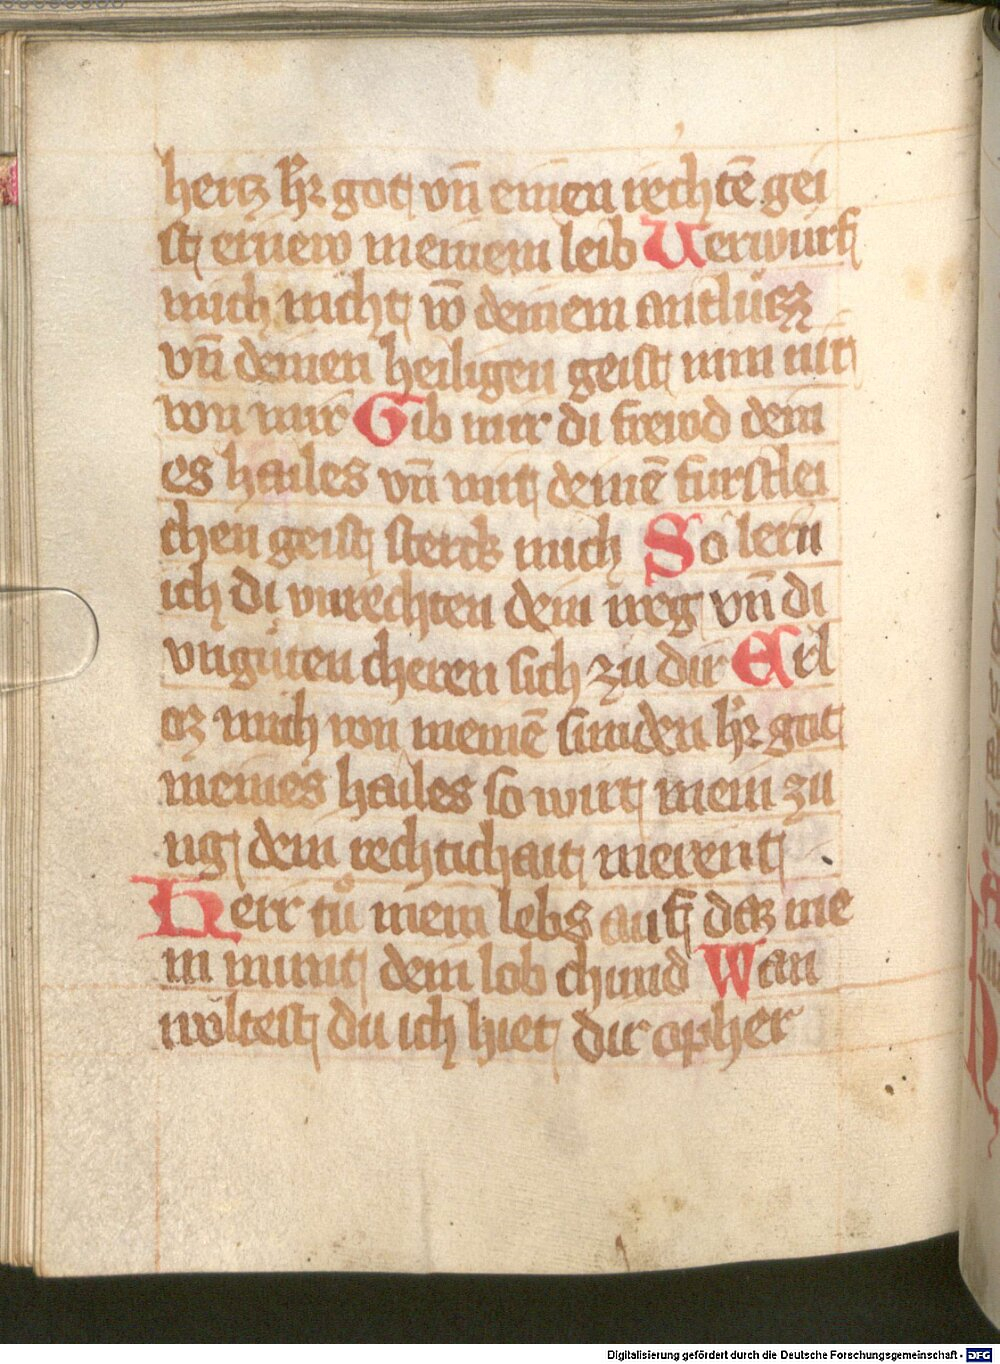 hertz hr̄ got vn̄ einen rechtē gei
st ernew meinem leib Verwurf
mich nicht vō deinem antlücz
vn̄ deinen heiligen geist nim nit
von mir Gib mir di frewd dein
es hailes vn̄ mit deinē furstlei
chen geist sterck mich So lern
ich di vnrechten dein weg vn̄ di
vngüten cheren sich zu dir Erl
ez mich von meinē sunden hr̄ got
meines hailes so wirt mein zu
ng dein rechtichait merent
Herr tů mein lebs auf daz me
in munt dein lob chund Wan
wöltest du ich hiet dir opher
Digitalisierung gefördert durch die Deutsche Forschungsgemeinschaft - DFG